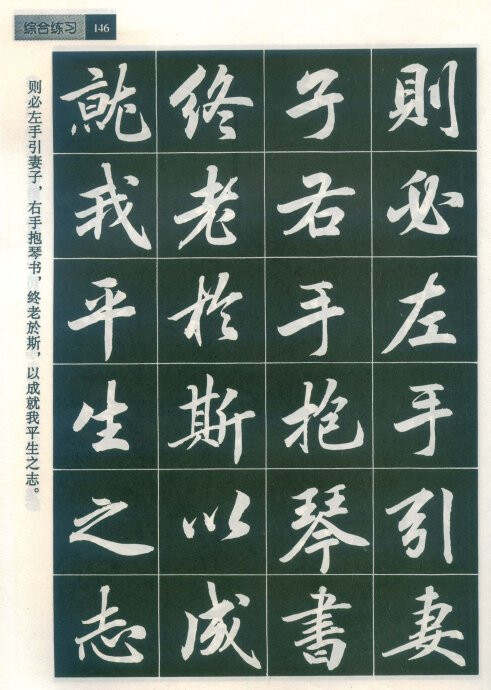 综合练习 146
則必左手引妻
子右手抱琴書
終老於斯以成
就我平生之志
则必左手引妻子，右手抱琴书，终老於斯，以成就我平生之志。